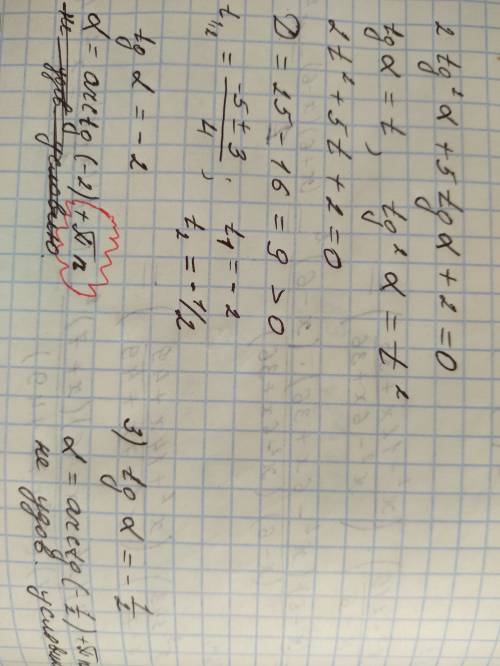 2 tg² α + 5 tg α + 2 = 0
tg α = t, tg² α = t²
2t² + 5t + 2 = 0
D = 25 - 16 = 9 > 0
t₁/₂ = (-5 ± 3)/4; t₁ = -2
t₂ = -1/2
tg α = -2
α = arctg (-2) + πn
не удов. условию
3) tg α = -1/2
α = arctg (-1/2) + πn
не удов. условию